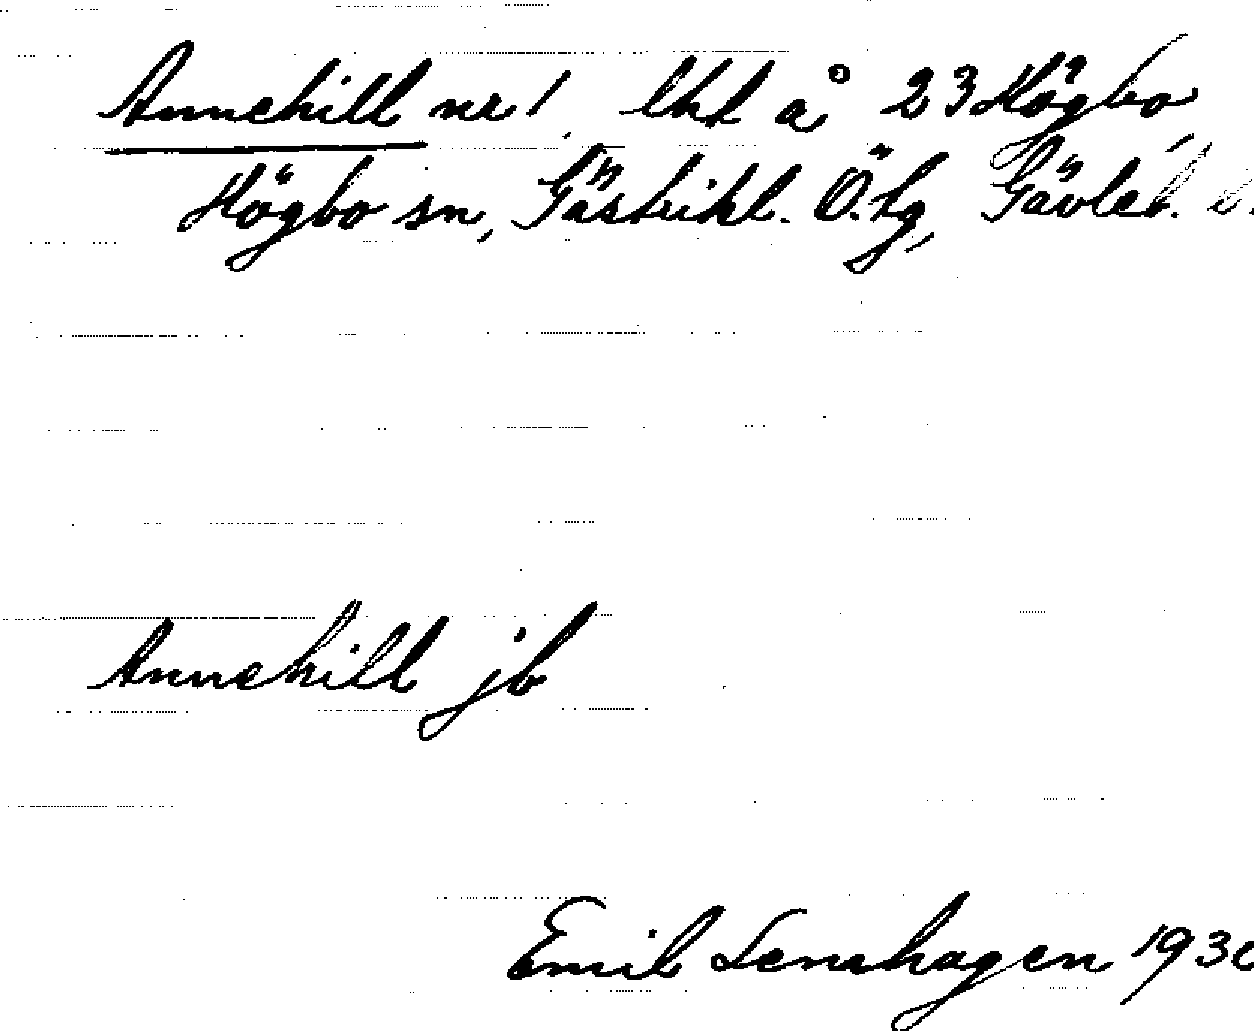 Annehill nr 1. lht å 23 Högbo
Högbo sn, Gästrikl. Ö. tg, Gävleb. l.
Annehill jb
Emil Lenhagen 1930